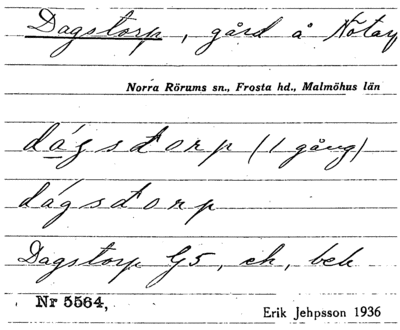 Dagstorp, gård å
Norra Rörums sn., Frosta hd., Malmöhus län
dágsdorp (1 gång)
dágsdorp
Dagstorp G5, ek, bek
Nr 5564,
Erik Jehpsson 1936